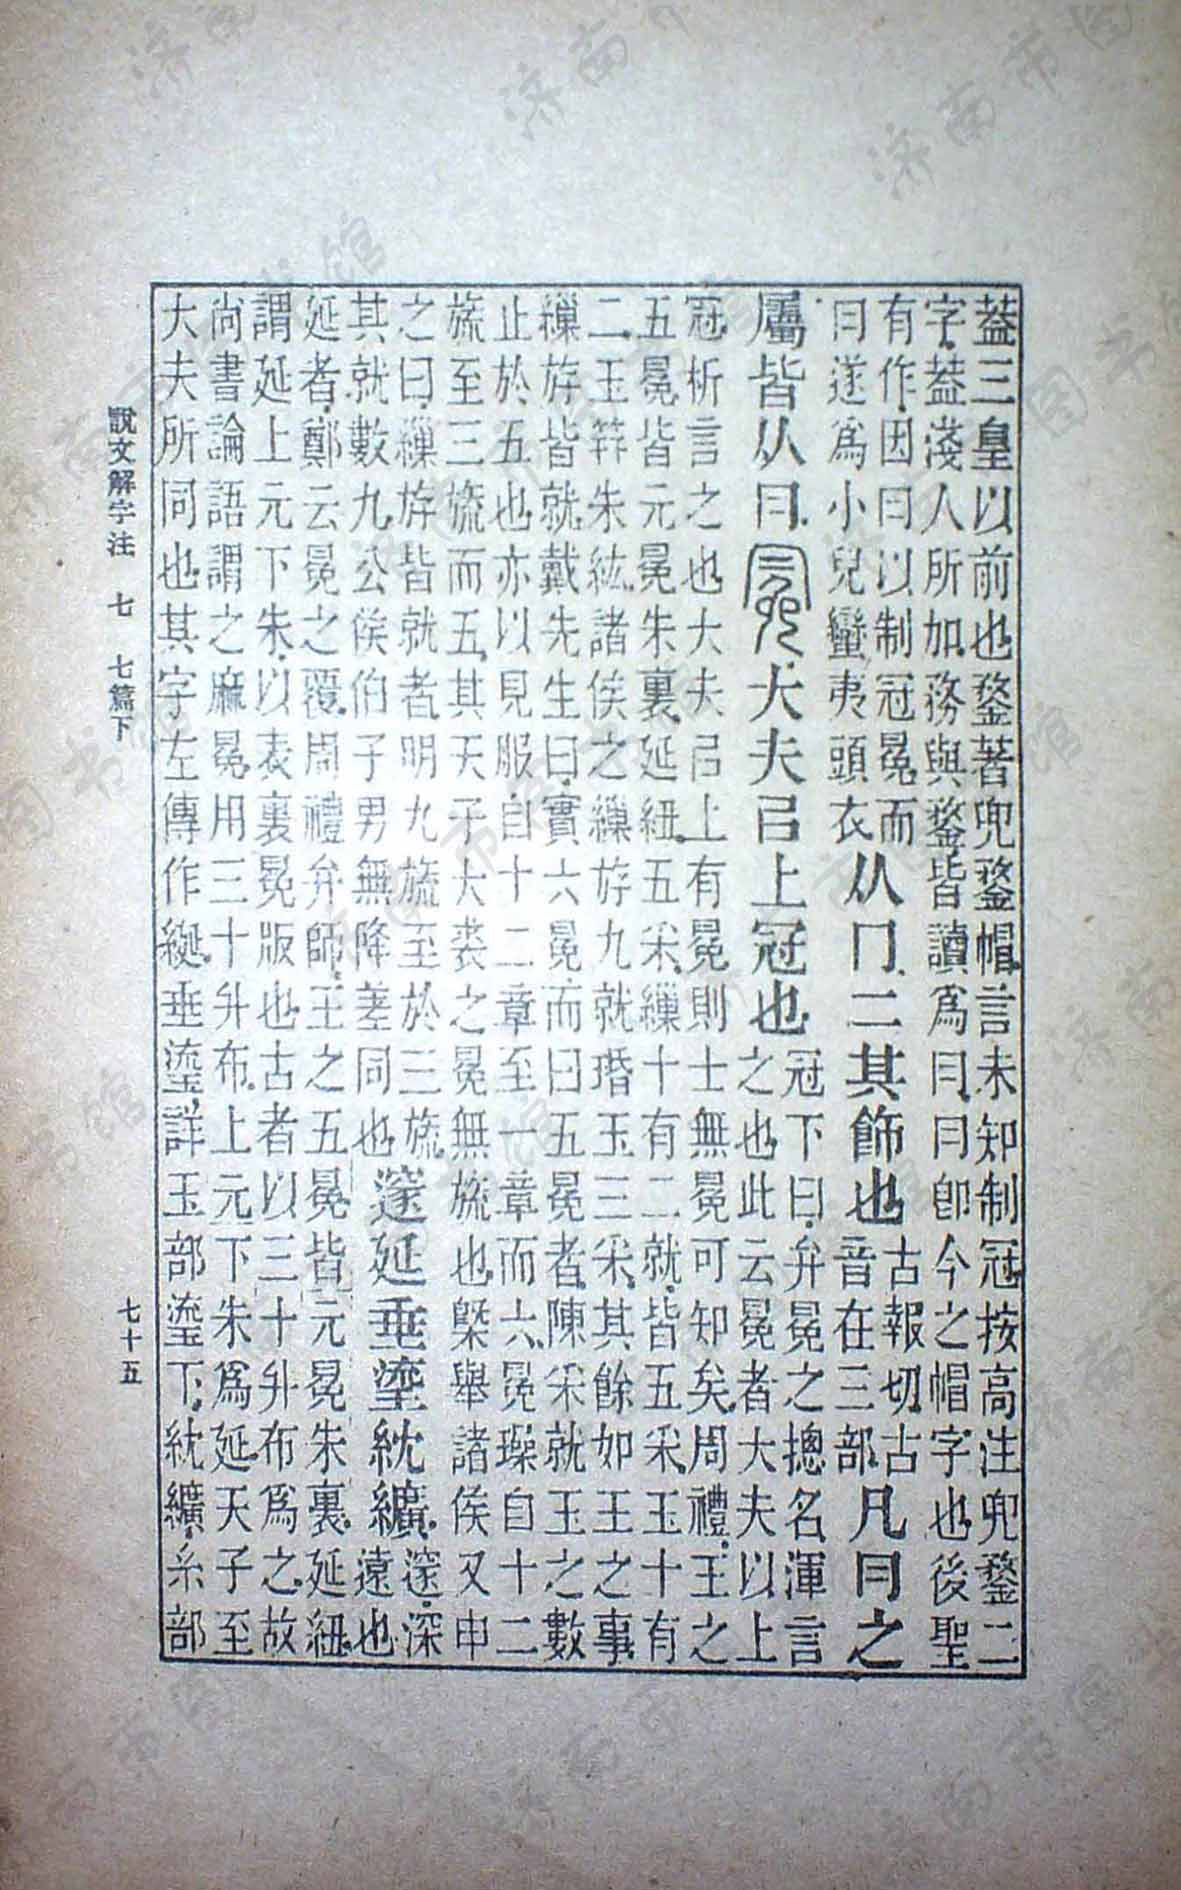 葢三皇以前也鍪著兜鍪帽言未知制冠按高注兜鍪二
字葢淺人所加務與鍪皆讀爲冃冃卽今之帽字也後聖
有作因曰以制冠冕而
曰遂爲小兒蠻夷頭衣
从冂二其飾也
古報切古
音在三部
凡冃之
屬皆从冃冕大夫㠯上冠也
冠下曰弁冕之總名渾言
之也此云冕者大夫以上
冠析言之也大夫㠯上有冕則士無冕可知矣周禮王之
五冕皆元冕朱裏延紐五采繅十有二就皆五采玉十有
二玉笄朱紘諸侯之繅斿九就瑉玉三采其餘如王之事
繅斿皆就戴先生曰實六冕而曰五冕者陳采就玉之數
止於五也亦以見服自十二章至一章而六冕璪自十二
旒至三旒而五其天子大裘之冕無旒也槩舉諸侯又申
之曰繅斿皆就者明九旒至於三旒
其就數九公侯伯子男無降差同也
邃延垂瑬紞纊
邃深
遠也
延者鄭云冕之覆周禮弁師王之五冕皆元冕朱裏延紐
謂延上元下朱以表裏冕版也古者以三十升布爲之故
尚書論語謂之麻冕用三十升布上元下朱爲延天子至
大夫所同也其字左傳作綖垂瑬詳玉部瑬下紞纊糸部
說文解字注 七 七篇下 七十五
济南市图书馆